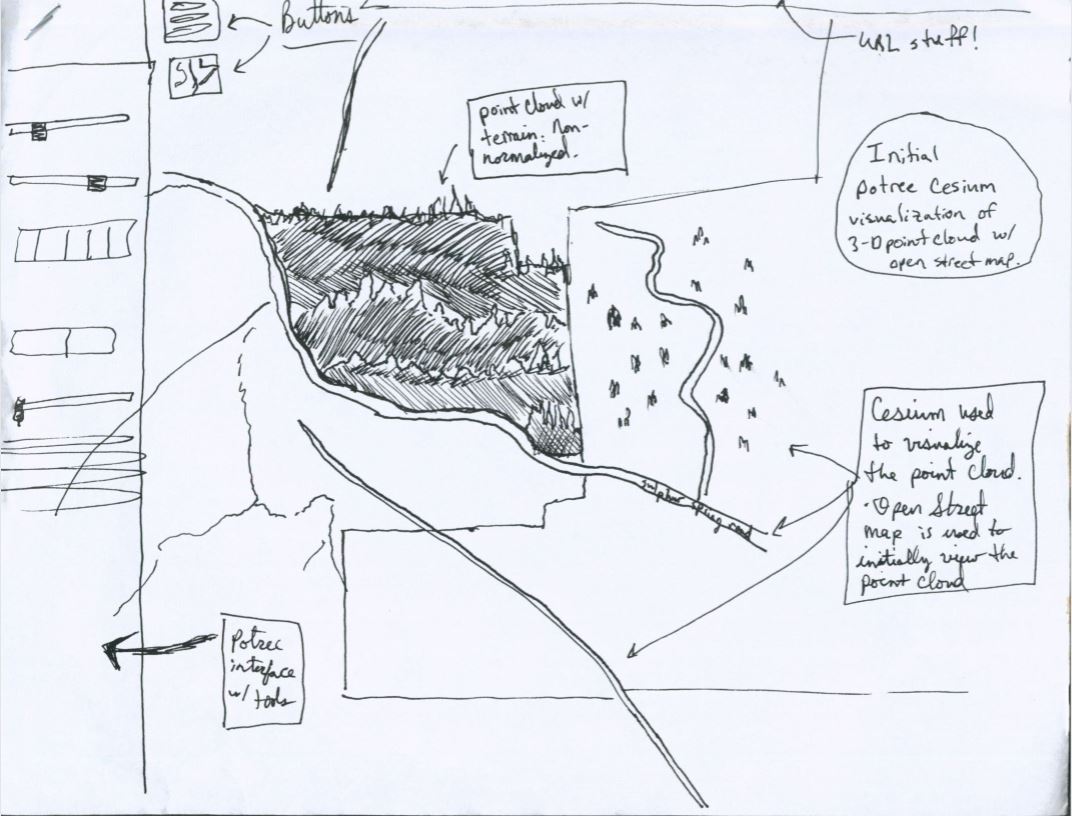 Buttons
URL stuff!
point cloud w/
terrain. Non-
normalized.
Initial
potree Cesium
visualization of
3-D point cloud w/
open street map.
Cesium used
to visualize
the point cloud.
· Open Street
map is used to
initially view the
point cloud
sulphur spring road
Potree
interface
w/ tools